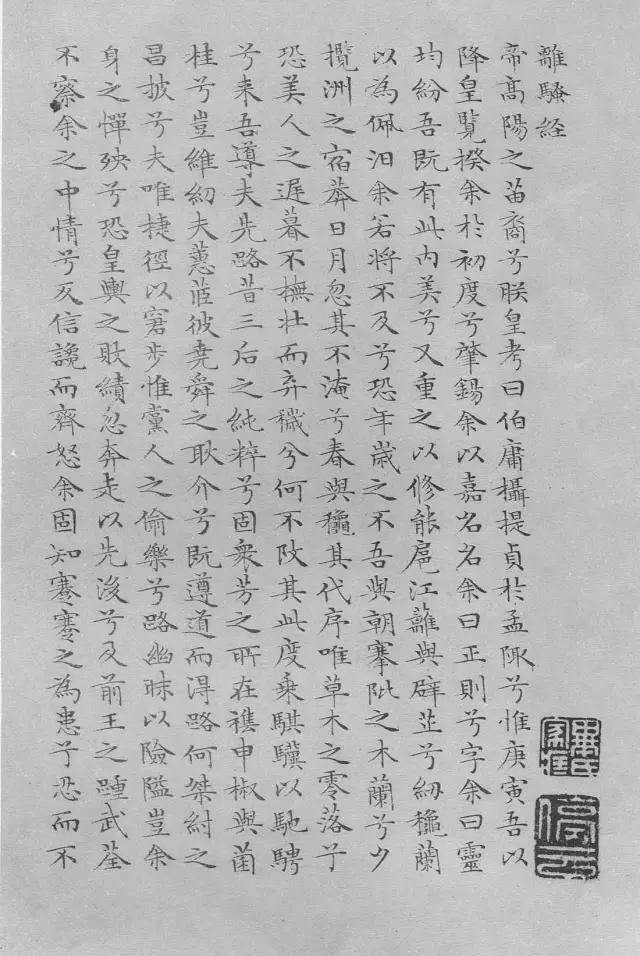 離騷経
帝高陽之苗裔兮朕皇考曰伯庸攝提貞於孟陬兮惟庚寅吾以
降皇覽揆余於初度兮肇錫余以嘉名名余曰正則兮字余曰靈
均紛吾既有此內美兮又重之以修能扈江蘺與辟芷兮紉穐蘭
以為佩汨余若將不及兮恐年歲之不吾與朝搴阰之木蘭兮夕
攬洲之宿莽日月忽其不淹兮春與龝其代序唯草木之零落兮
恐美人之遲暮不撫壯而弃穢兮何不改其此度乘騏驥以馳騁
兮来吾導夫先路昔三后之純粹兮固衆芳之所在襍申椒與菌
桂兮豈維紉夫蕙茝彼堯舜之耿介兮既遵道而得路何桀紂之
昌披兮夫唯捷徑以窘步惟黨人之偷樂兮路幽昧以險隘豈余
身之憚殃兮恐皇輿之敗績忽奔走以先後兮及前王之踵武荃
不察余之中情兮反信讒而齊怒余固知謇謇之為患兮忍而不
停云